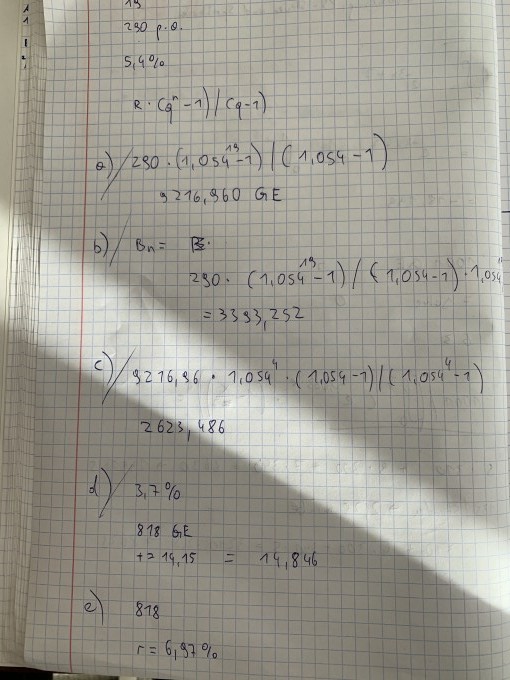 19
290 p.a.
5,4%
R · (qⁿ - 1) / (q - 1)
a) 290 · (1,054¹⁹ - 1) / (1,054 - 1)
9216,960 GE
b) Bn =
290 · (1,054¹⁹ - 1) / (1,054 - 1) · 1,054
= 3393,252
c) 9216,96 · 1,054⁴ · (1,054 - 1) / (1,054⁴ - 1)
2623,486
d) 3,7%
818 GE
t = 14,15 = 14,846
e) 818
r = 6,97%